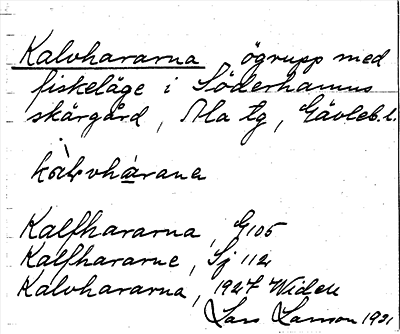 Kalvhararna ögrupp med
fiskeläge i Söderhamns
skärgård, Ala tg, Gävleb. l.
kàlvhàrana
Kalfhararna, G105
Kalfhararne, Sj 112
Kalvhararna, 1927 Widén
Lars Larson 1931